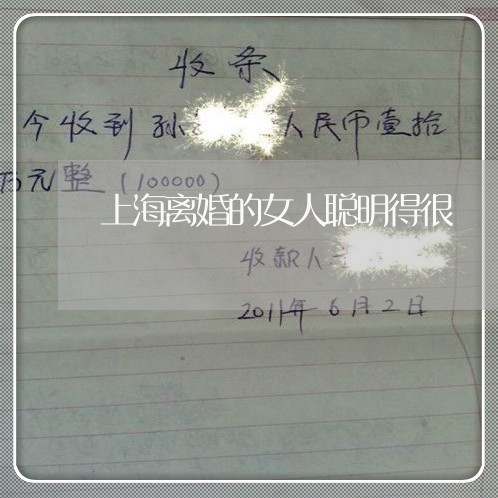 收条
今收到孙 人民币壹拾
万元整(100000)
上海离婚的女人聪明得很
收款人
2011年6月2日